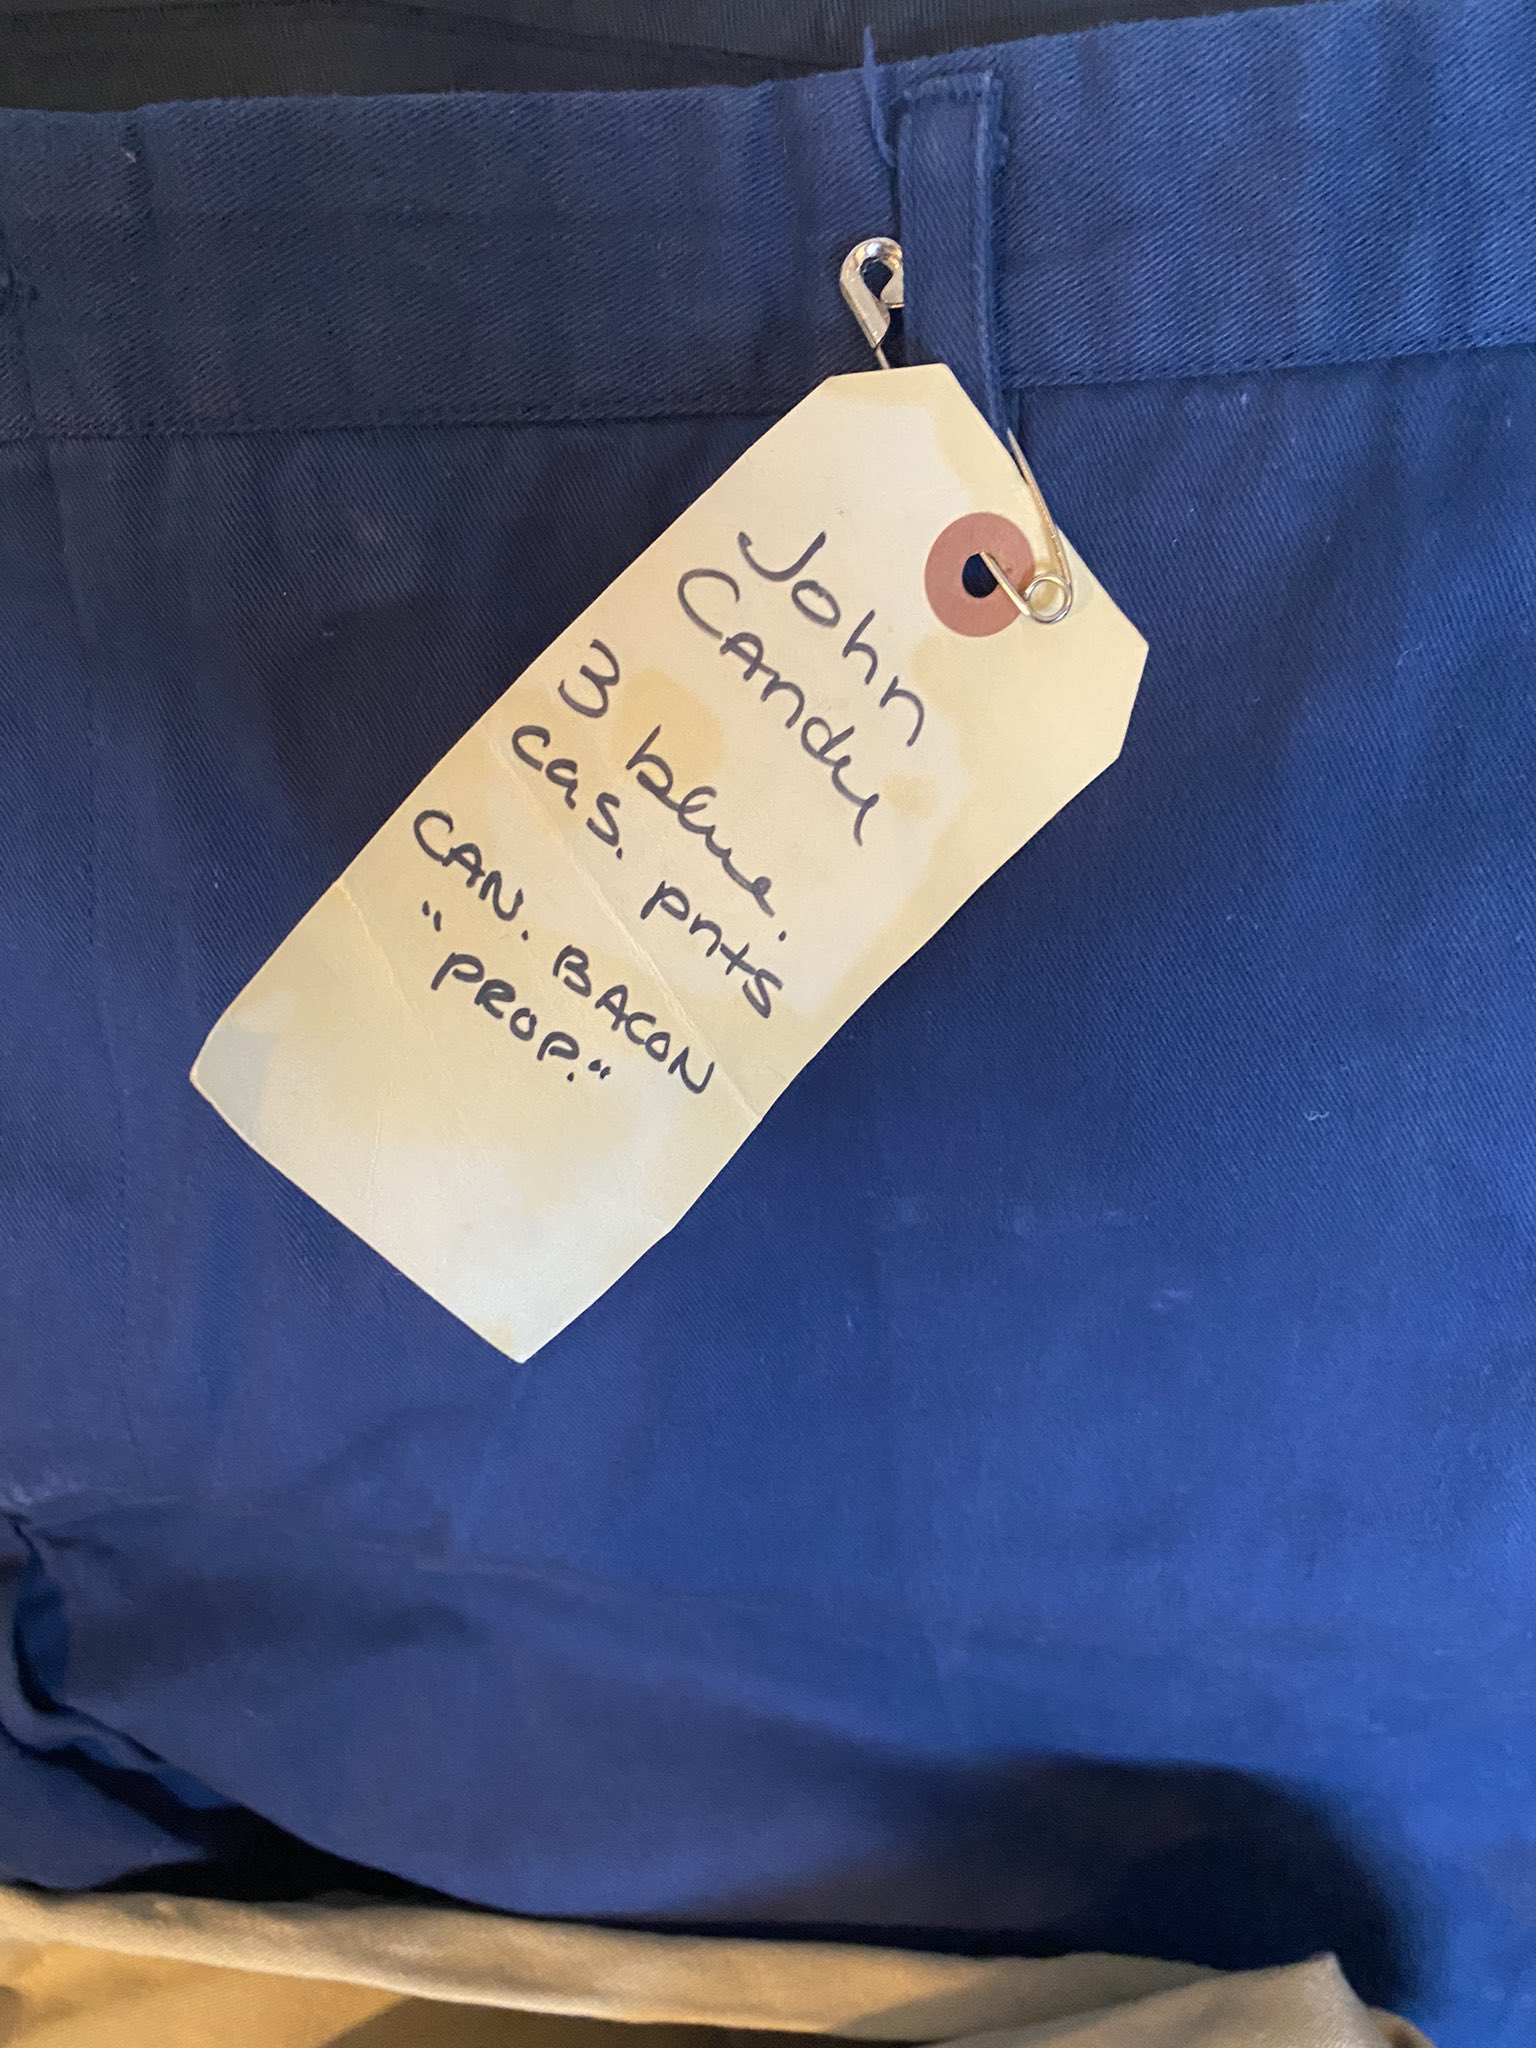 John
Candy
3 blue.
cas. pnts
CAN. BACON
"PROP."